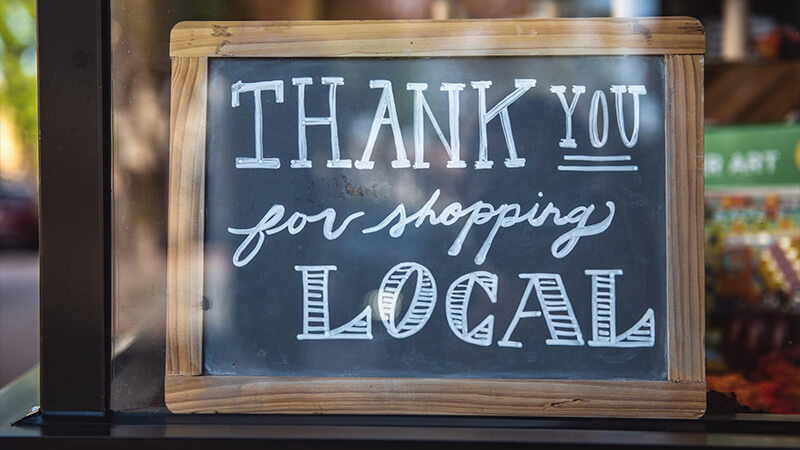 THANK YOU
for shopping
LOCAL
ART